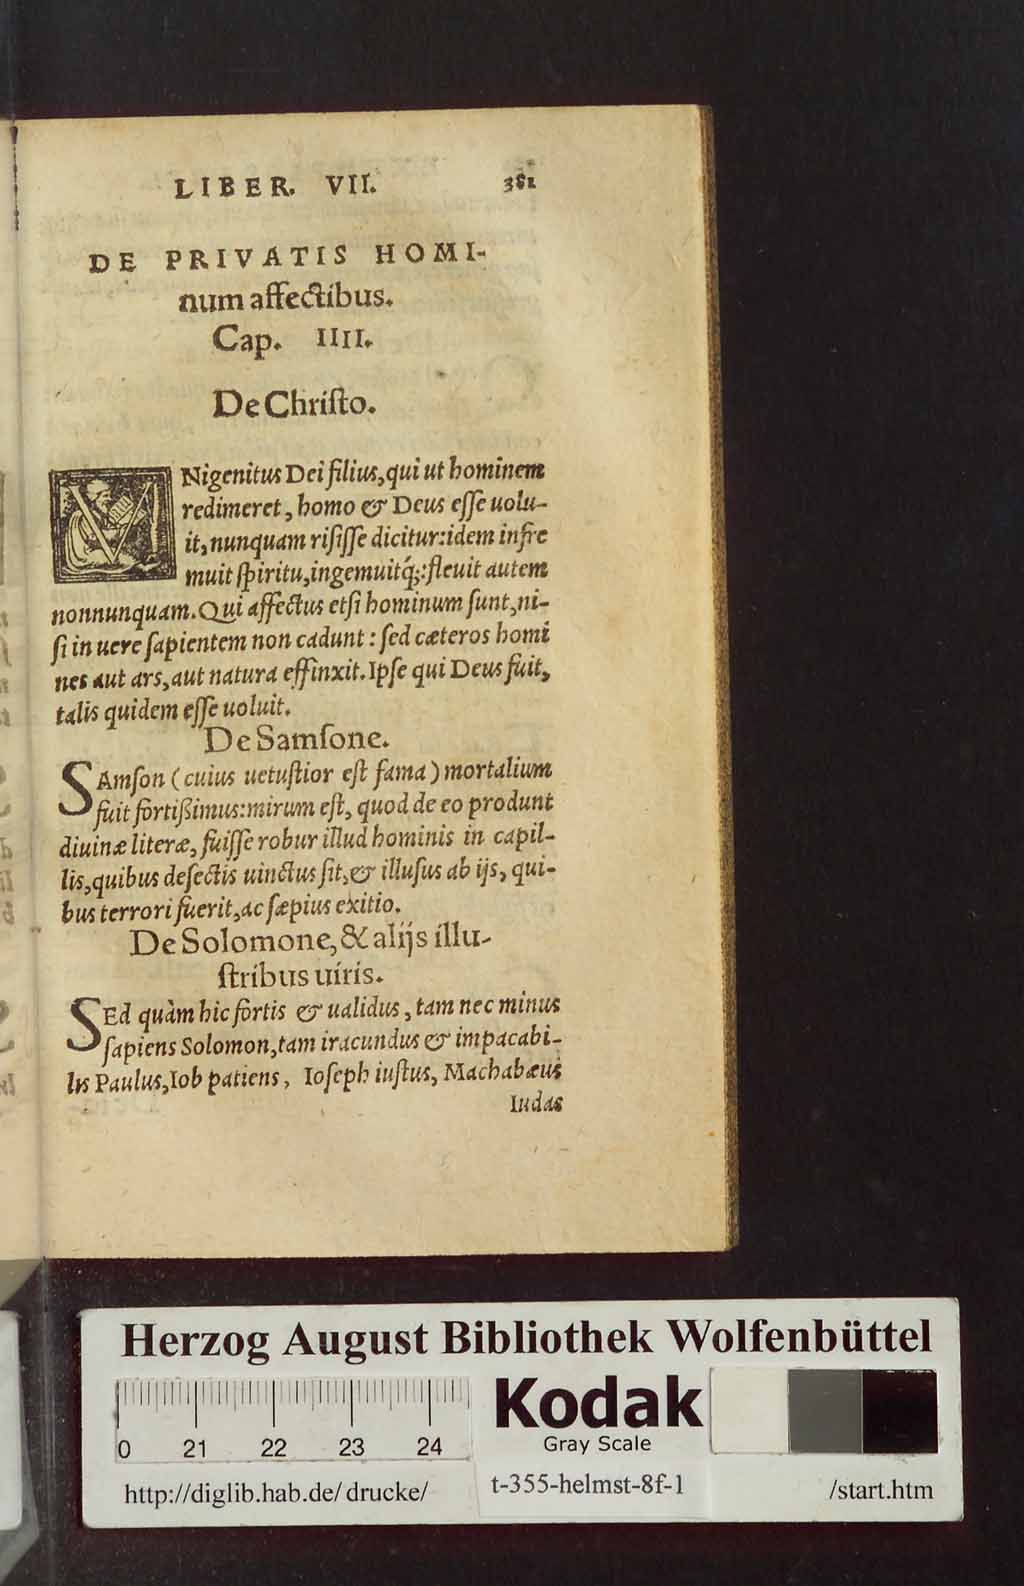 LIBER. VII. 381
DE PRIVATIS HOMI-
num affectibus.
Cap. IIII.
De Christo.
VNigenitus Dei filius, qui ut hominem
redimeret, homo & Deus esse uolu-
it, nunquam risisse dicitur: idem infre
muit spiritu, ingemuitq́;: fleuit autem
nonnunquam. Qui affectus etsi hominum sunt, ni-
si in uere sapientem non cadunt: sed cæteros homi
nes aut ars, aut natura effinxit. Ipse qui Deus fuit,
talis quidem esse uoluit.
De Samsone.
SAmson (cuius uetustior est fama) mortalium
fuit fortißimus: mirum est, quod de eo produnt
diuinæ literæ, fuisse robur illud hominis in capil-
lis, quibus desectis uinctus sit, & illusus ab ijs, qui-
bus terrori fuerit, ac sæpius exitio.
De Solomone, & alijs illu-
stribus uiris.
SEd quàm hic fortis & ualidus, tam nec minus
sapiens Solomon, tam iracundus & impacabi-
lis Paulus, Iob patiens, Ioseph iustus, Machabæus
Iudas
Herzog August Bibliothek Wolfenbüttel
Kodak
Gray Scale
0 21 22 23 24
http://diglib.hab.de/drucke/ t-355-helmst-8f-1 /start.htm